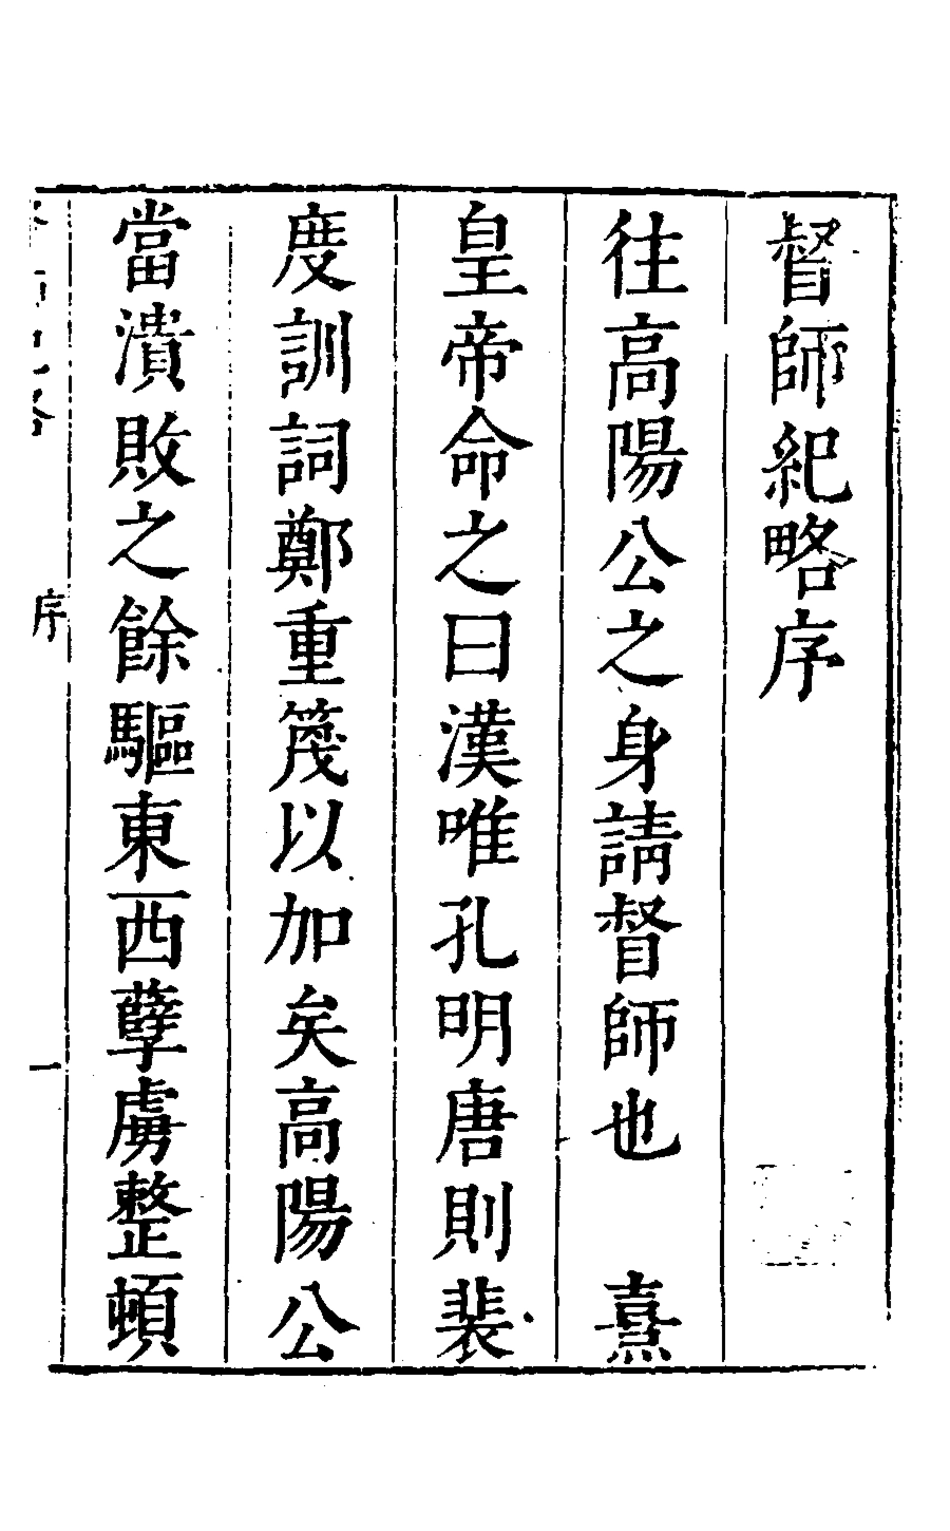 督師紀略序
往高陽公之身請督師也　熹
皇帝命之曰漢唯孔明唐則裴
度訓詞鄭重篾以加矣高陽公
當潰敗之餘驅東西孽虜整頓
師紀略
序
一